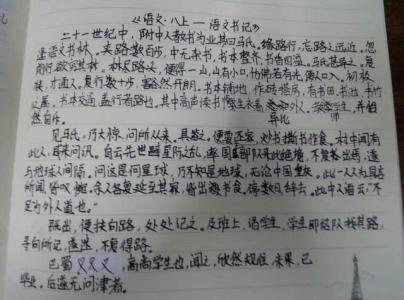 《语文·八上一语文书记》
二十一世纪中,附中人教书为业,其曰马氏。缘路行,忘路之远近。忽
逢语文书林,夹路数百步,中无杂书,书本整齐,书香四溢。马氏甚异之。复
前行,欲穷其林。林尽路义,便得一山,山有小口,仿佛若有光,便从口入。初极
狭,才通人。复行数十步,豁然开朗。书本铺地,作砖搭房,有书田,书池,书竹
之属。书本交通,其中高声读书,学生衣着,
并怡
然自乐。
见马氏,乃大惊,问所从来。具答之。便要还家,炒书撕书作食。村中闻有
此人,咸来问讯。自云先世避星际之乱,率国部队来此绝境,不复出焉,遂
与地球人间隔。问这是何星球,乃不知是地球,无论中国黎民。此一人一为具言
所闻,皆叹惋。余人各复延至其家,皆出书食。停数日,辞去。此中人语云:“不
足为外人道也。”
既出,便扶向路,处处记之。及班上,语学生。学生即组队找其路,
寻向所记,遂迷,不复得路。
巴蜀,高尚学生也,闻之,欣然规往。未果,已
毕业。后遂无问津者。